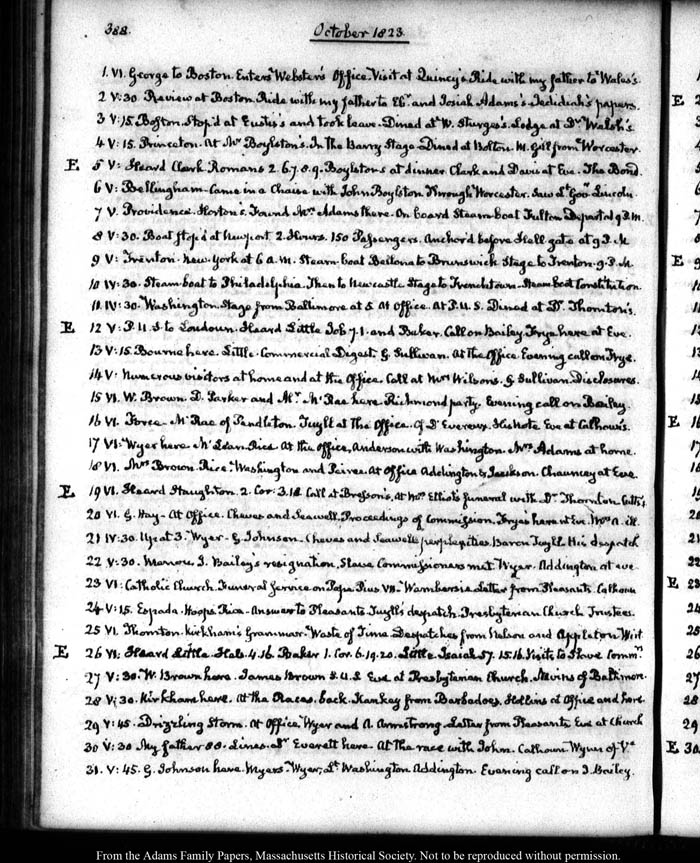 388.
October 1823.
1. VI. George to Boston. Enters Webster's Office. Visit at Quincy's. Ride with my father to Wales's.
2 V:30. Review at Boston. Ride with my father to Eb. and Josiah Adams's. Jedidiah's papers.
3 V:15 Boston. Stop'd at Eustis's and took leave. Dined at W. Sturgis's. Lodge at Dr Walsh's.
4 V:15. Princeton. At Mr Boylston's. In the Barry Stage. Dined at Bolton. M. Gill from Worcester.
E 5 V: Heard Clark Romans 2. 6.7.8.9. Boylston's at dinner Clark and Davis at Eve. The Bond.
6 V: Bellingham. Came in a Chaise with John Boylston through Worcester. Saw Lt Govr Lincoln
7 V. Providence. Horton's. Found Mrs Adams there. On board Steam-boat Fulton Departed 9 P.M.
8 V:30. Boat stop'd at Newport 2. Hours. 150 Passengers. Anchor'd before Hell gate at 9 P.M
9 V: Trenton. New-York at 6 A.M. Steam-boat Bellona to Brunswick Stage to Trenton. 9 P.M.
10 IV:30. Steam-boat to Philadelphia. Then to Newcastle Stage to Frenchtown. Steam boat Constitution.
11. IV:30. Washington. Stage from Baltimore at 5. At Office. At P.U.S. Dined at Dr Thornton's.
E 12 V: P.U.S. to Loudoun. Heard Little Job 7.1. and Baker. Call on Bailey, Frye here at Eve.
13 V:15. Bourne here. Little. Commercial Digest. G. Sullivan. At the Office. Evening call on Frye.
14 V: Numerous visitors at home and at the Office. Call at Mrs Wilson's. G Sullivan. Disclosures.
15 VI. W. Brown. D. Parker and Mr McRae here. Richmond party. Evening call on Bailey.
16 VI. Force. McRae of Pendleton. Tuyll at the Office. Of D'Evereux. His Note. Eve at Calhoun's.
17 VI: Wyer here. McLean. Rice. At the Office, Anderson with Washington. Mrs Adams at home.
18 VI. Mrs Brown. Rice. Washington and Peirce. At Office Addington & Jackson. Chauncey at Eve.
E 19 VI. Heard Staughton. 2. Cor: 3.18. Call at Bresson's, at Mr Elliot's funeral with Dr Thornton.
20 VI. G. Hay. At Office. Cheves and Seawell. Proceedings of Commission. Fryes here at Eve. Mrs A. ill.
21 IV:30. Up at 3. Wyer. G Johnson. Cheves and Seawell's perplexities. Baron Tuyll. His despatch
22 V:30. Monroe. T. Bailey's resignation, Slave Commissioners met. Wyer. Addington at eve
23 VI: Catholic Church. Funeral Service on Pope Pius VII. Wambersie. Letter from Pleasants. Calhoun
24 V:15. Espada. Hoops. Rice. Answer to Pleasants. Tuyll's despatch. Presbyterian Church Trustees.
25 VI. Thornton. Kirkham's Grammar. Waste of Time. Despatches from Nelson and Appleton. Wirt
E 26 VI: Heard Little. Heb. 4.16. Baker 1. Cor. 6.19.20. Little. Isaiah 57. 15.16. Visits to Slave Commrs
27 V:30. W. Brown here. James Brown S.U.S. Eve at Presbyterian Church. Nevins of Baltimore.
28 V:30. Kirkham here. At the Races. back. Kankey from Barbadoes. Hollins at Office and here.
29 V:45. Drizzling Storm. At Office, Wyer and A. Armstrong. Letter from Pleasants. Eve at Church
30 V:30 My father 88. Lines. Dr Everett here. At the race with John. Calhoun. of Va
31. V:45. G. Johnson here. Myers. Wyer, Lt Washington. Addington. Evening call on T. Bailey.
From the Adams Family Papers, Massachusetts Historical Society. Not to be reproduced without permission.